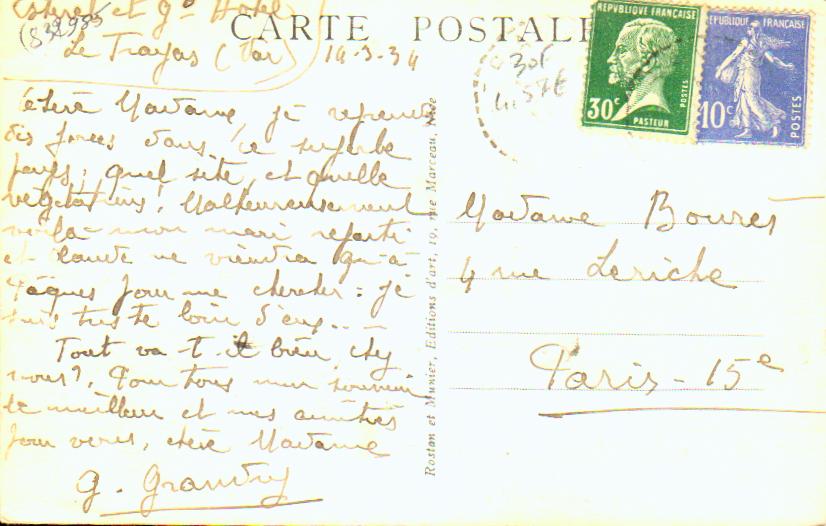 Esterel et Gd Hotel
(S 32985
Le Trayas (Var) 14-3-34
CARTE POSTALE
Chère Madame, je reprends
des forces dans ce superbe
pays; quel site, et quelle
végétation! Malheureusement
voilà mon mari reparti
et Claude ne viendra qu'à
Pâques pour me chercher: je
suis triste loin d'eux...
Tout va-t-il bien chez
vous? Pour tous mon souvenir
le meilleur et mes amitiés
pour vous, chère Madame
G. Grandry
Rostan et Munier, Editions d'art, 19, rue Marceau, Nice
30F
RÉPUBLIQUE FRANÇAISE
30c
PASTEUR
POSTES
RÉPUBLIQUE FRANÇAISE
10c
POSTES
Madame Bourès
4 rue Leriche
Paris - 15e